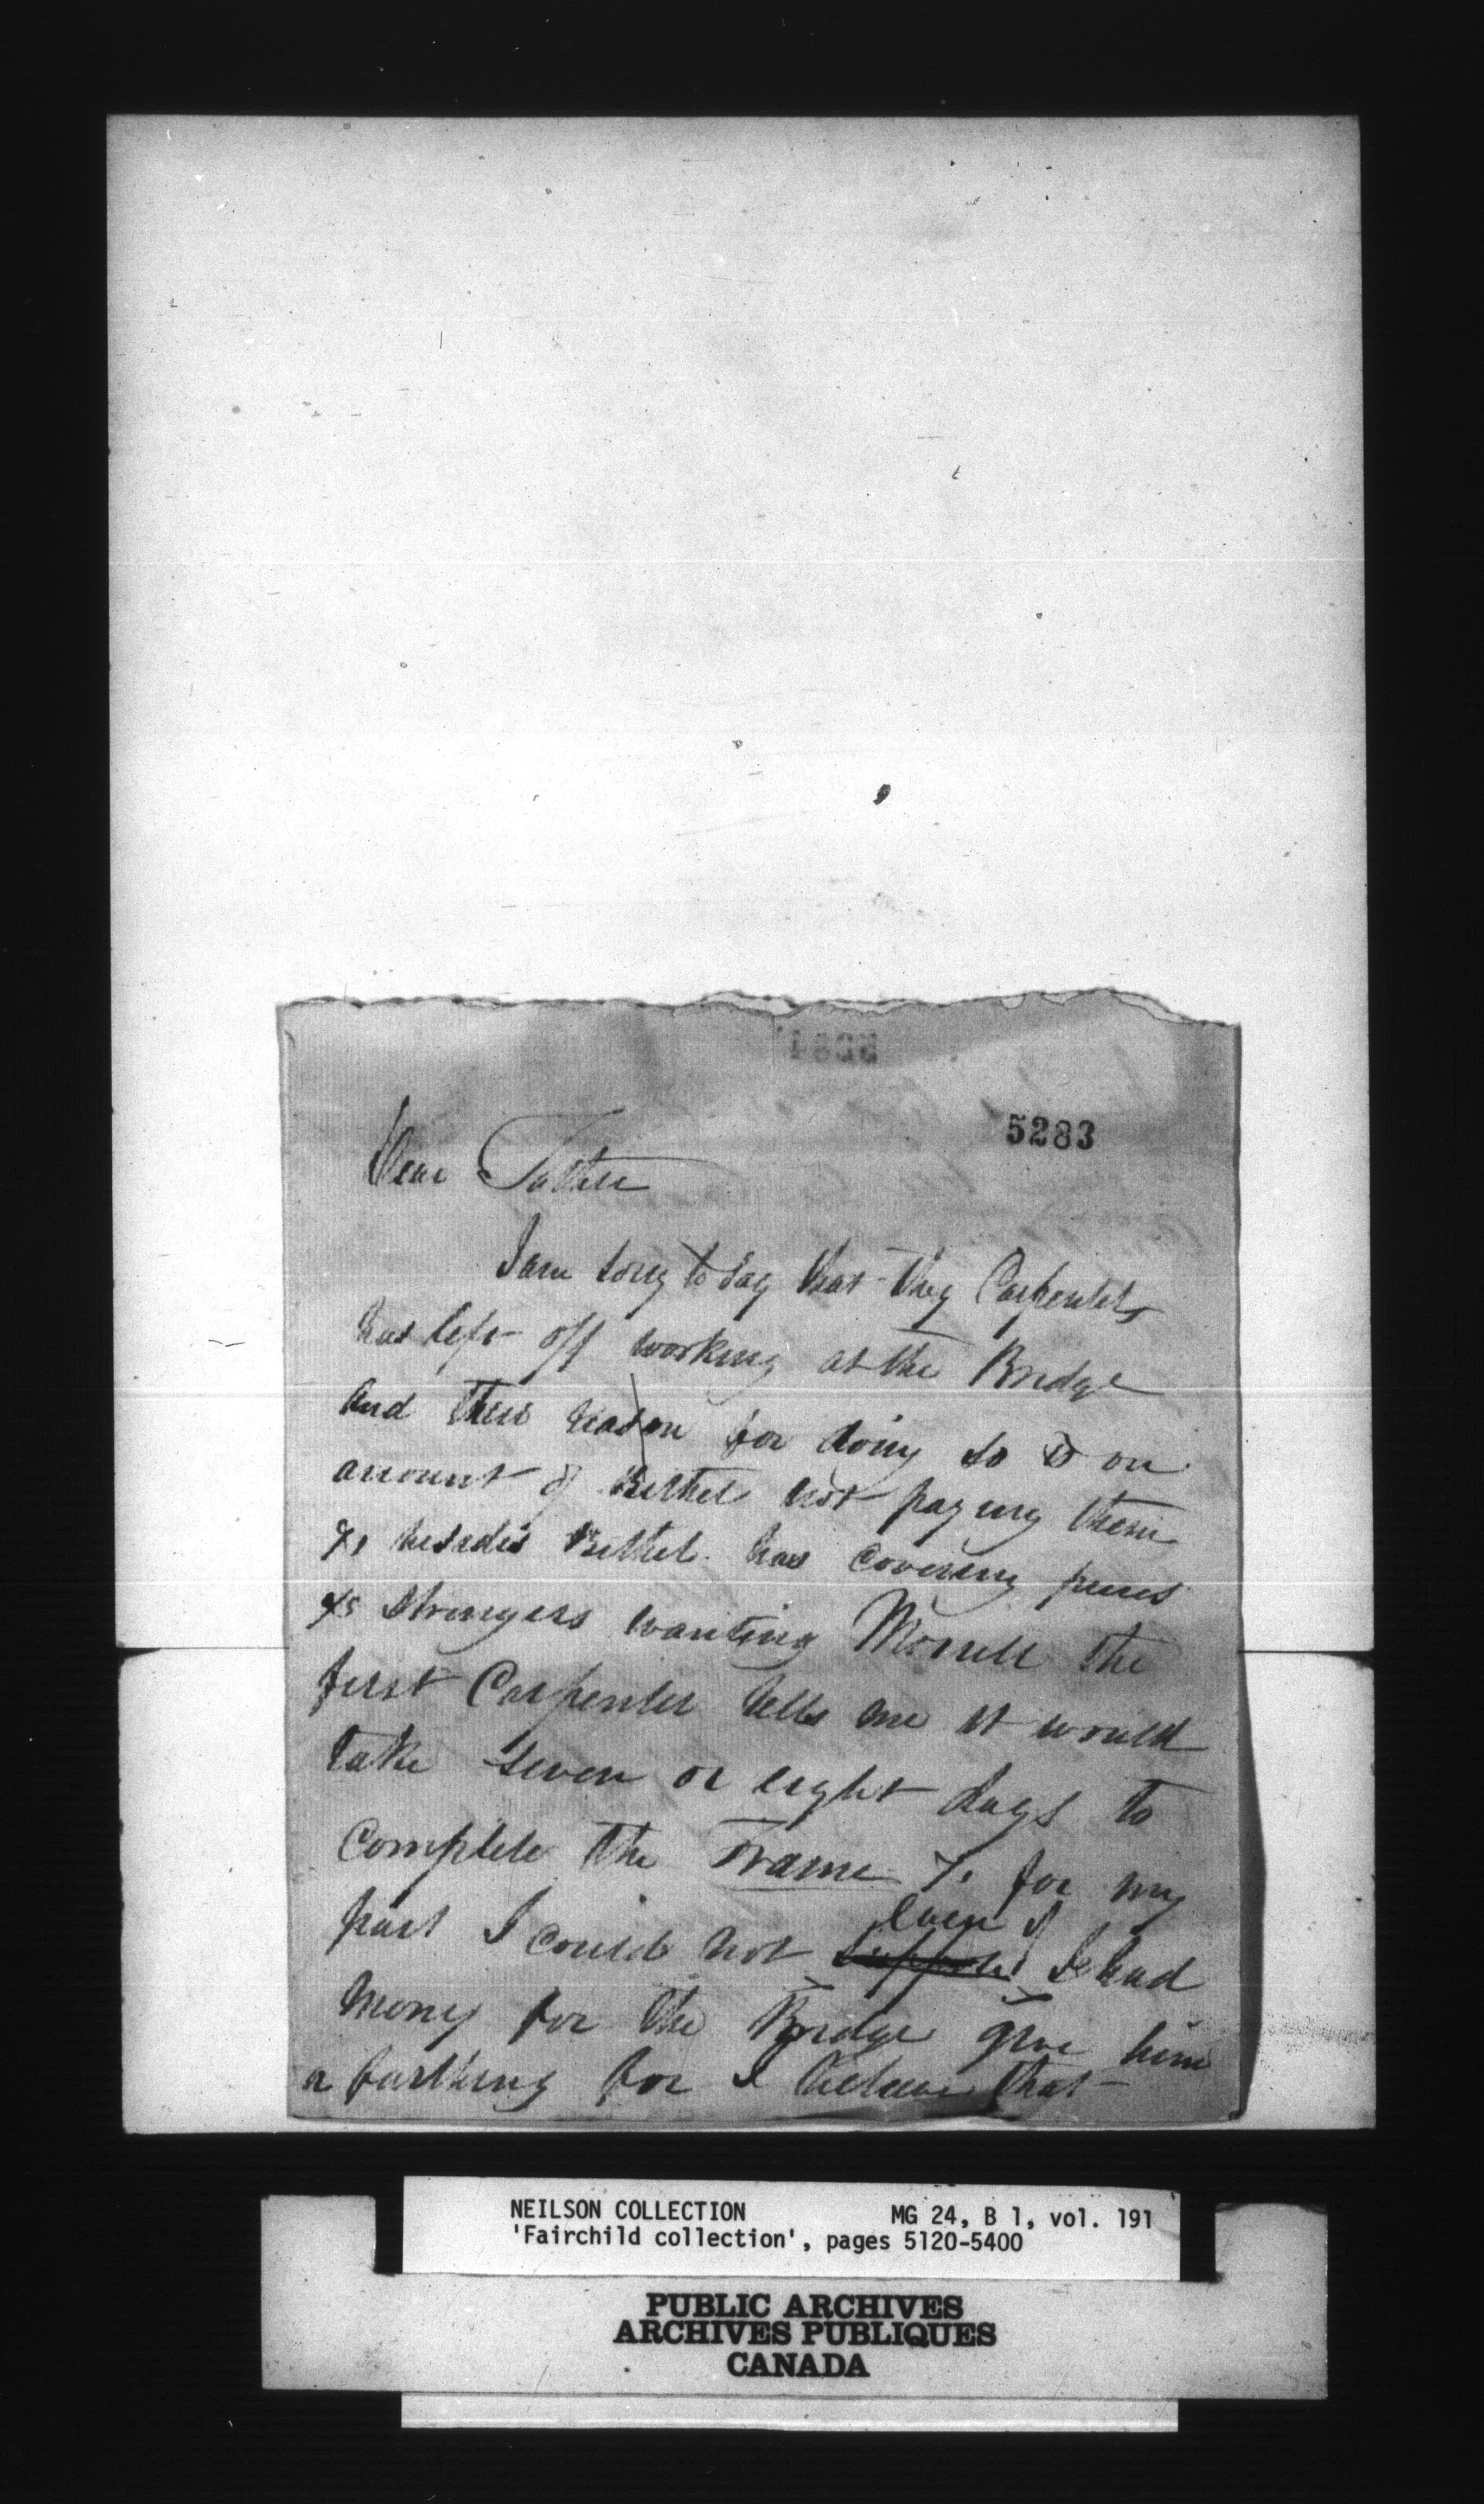 5283
Dear Father
I am sory to say that they Carpenters
has left off working at the Bridge
and their reason for doing so is on
amount of Bethel not paying them
& besides Bethel has covering pieces
& Stringers wanting Morrell the
first Carpenter tells me it would
take seven or eight days to
Complete the Frame & for my
even if
part I could not I had
mony for the Bridge give him
a farthing for I believe that
NEILSON COLLECTION MG 24, B 1, vol. 191
'Fairchild collection', pages 5120-5400
PUBLIC ARCHIVES
ARCHIVES PUBLIQUES
CANADA